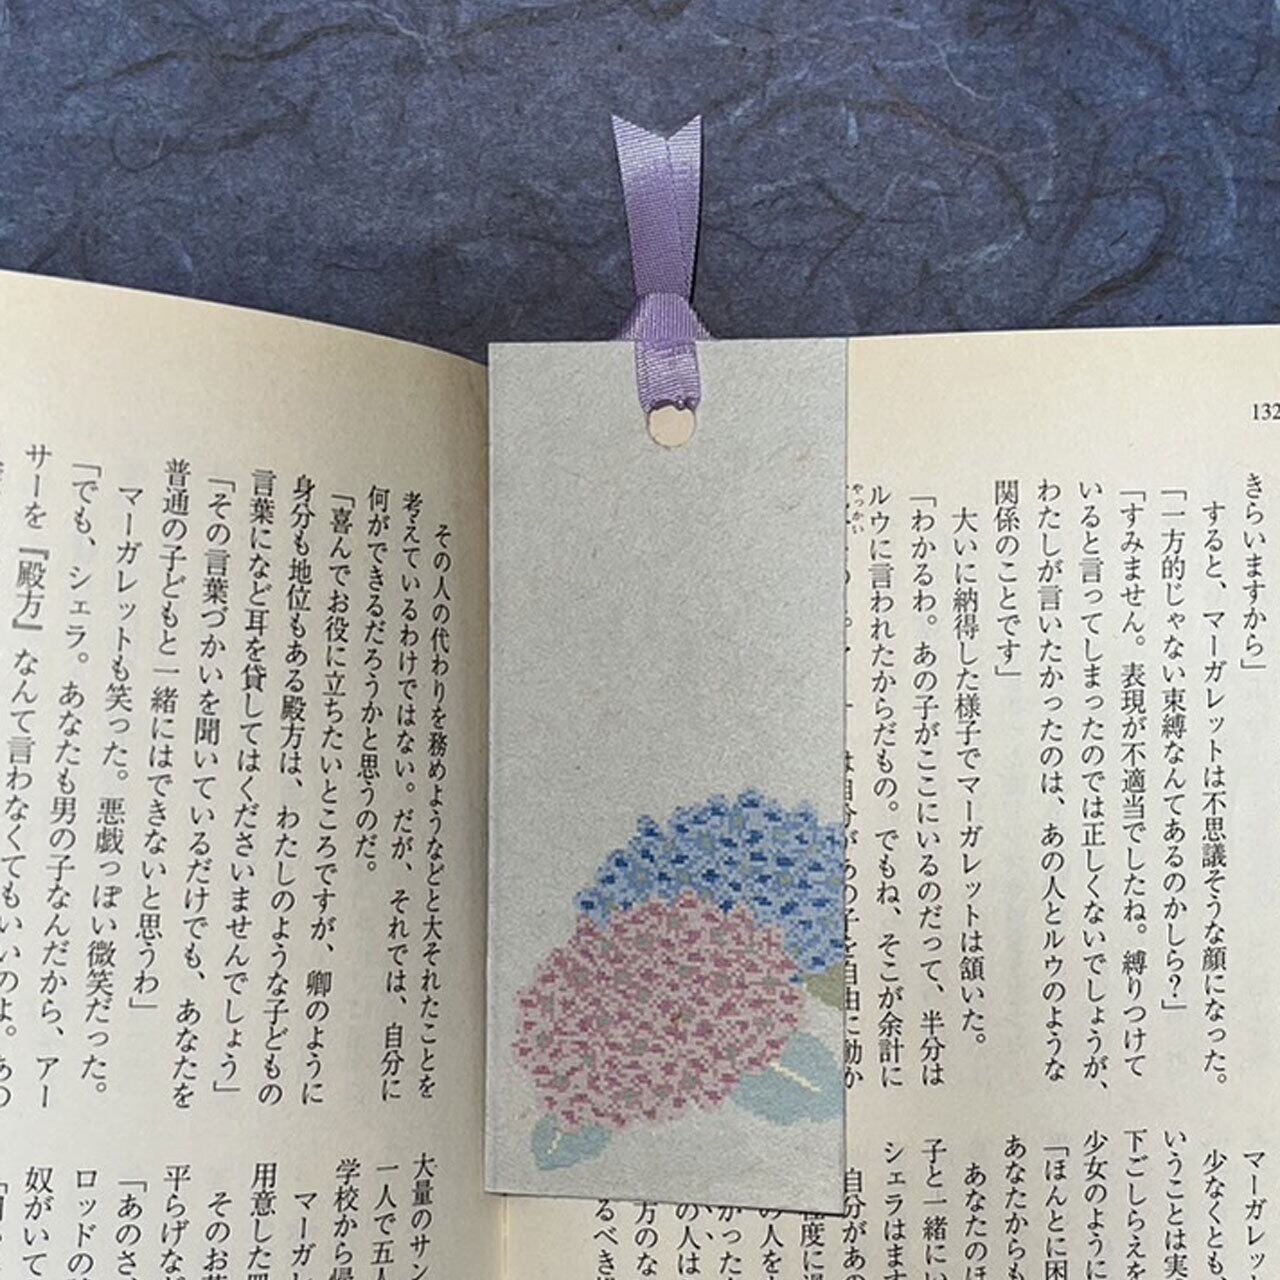 132
きらいますから」
すると、マーガレットは不思議そうな顔になった。
「一方的じゃない束縛なんてあるのかしら?」
「すみません。表現が不適当でしたね。縛りつけて
いると言ってしまったのでは正しくないでしょうが、
わたしが言いたかったのは、あの人とルウのような
関係のことです」
大いに納得した様子でマーガレットは頷いた。
「わかるわ。あの子がここにいるのだって、半分は
ルウに言われたからだもの。でもね、そこが余計に
やっかい
は自分があの子を自由に動か
マーガレッ
少なくとも、
いうことは実
下ごしらえを
少女のように
「ほんとに困
あなたからも
あなたのほ
子と一緒にい
シェラはます
自分があの
その人の代わりを務めようなどと大それたことを
考えているわけではない。だが、それでは、自分に
何ができるだろうかと思うのだ。
「喜んでお役に立ちたいところですが、卿のように
身分も地位もある殿方は、わたしのような子どもの
言葉になど耳を貸してはくださいませんでしょう」
「その言葉づかいを聞いているだけでも、あなたを
普通の子どもと一緒にはできないと思うわ」
マーガレットも笑った。悪戯っぽい微笑だった。
「でも、シェラ。あなたも男の子なんだから、アー
サーを『殿方』なんて言わなくてもいいのよ。あの
大量のサン
一人で五人
学校から帰
マーガレ
用意した皿
そのお茶
平らげな
「あのさ、
ロッドの
奴がいて